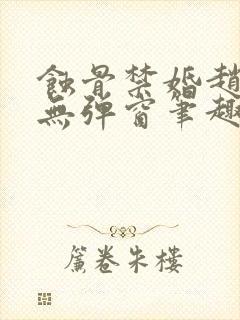 蝕骨禁婚趙
無彈窗筆趣
簾卷朱樓